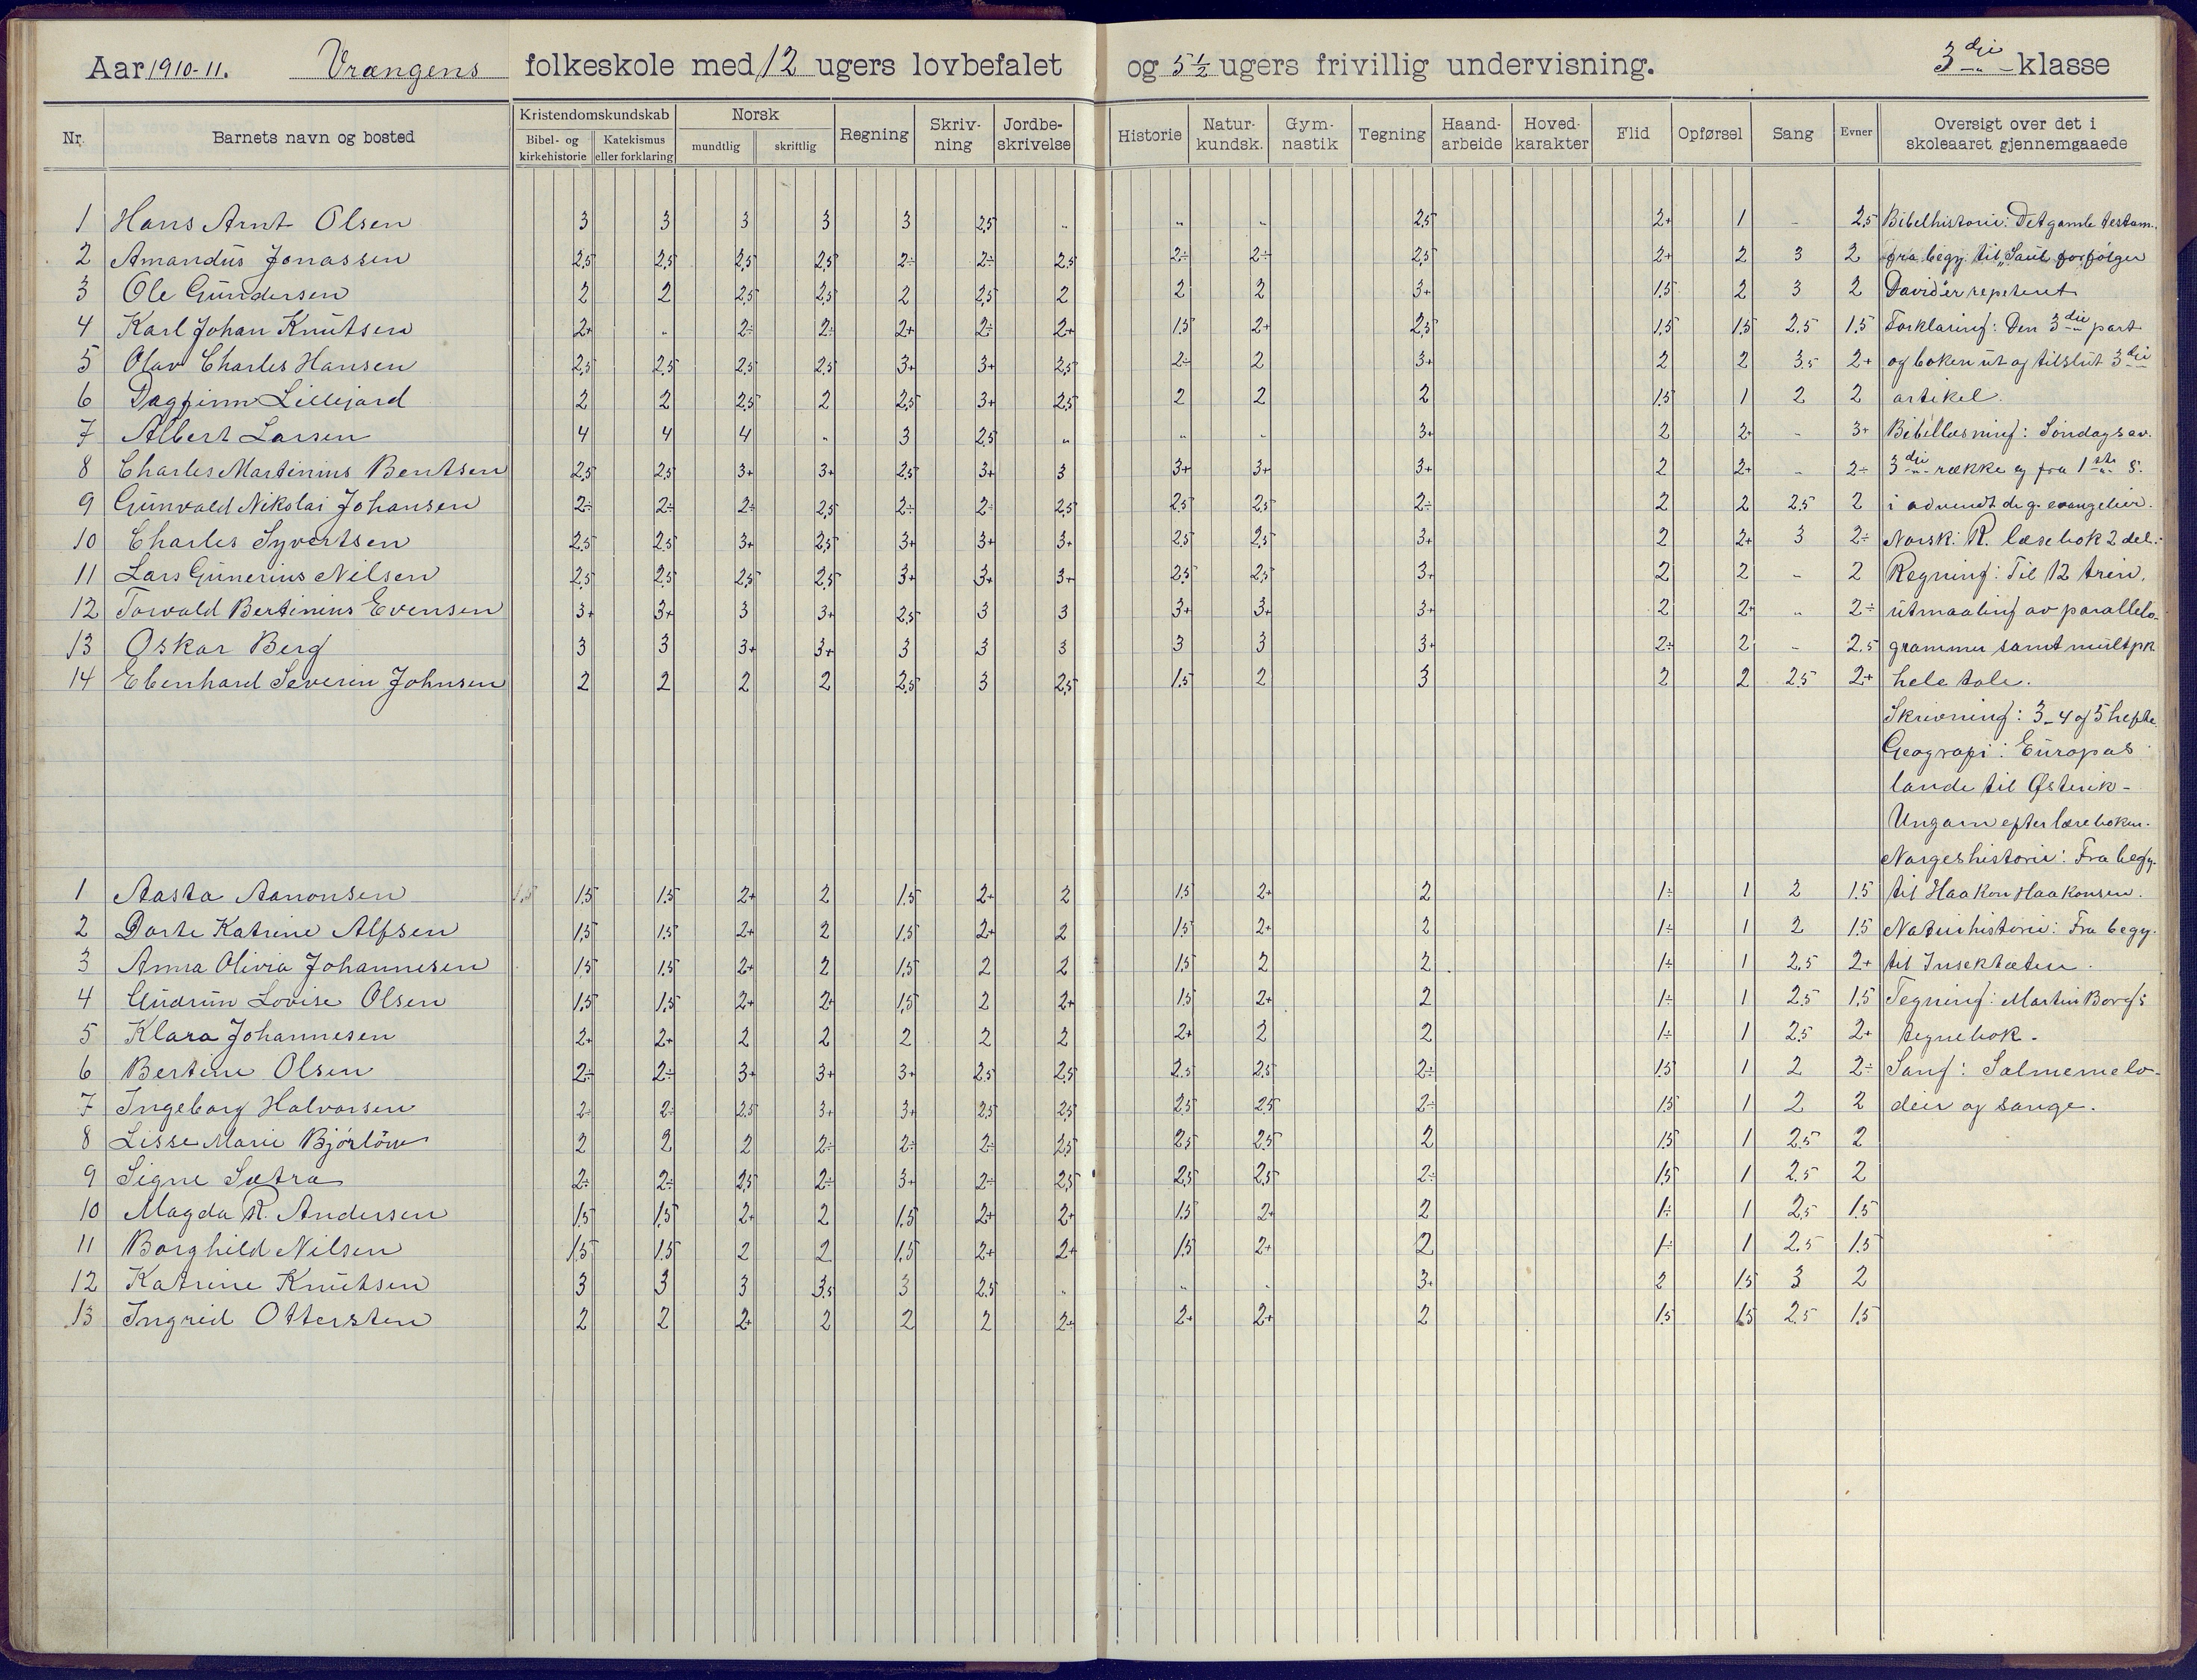 Aar 1910-11. Vrangens folkeskole med 12 ugers lovbefalet og 5 1/2 ugers frivillig undervisning. 3die klasse
Nr. Barnets navn og bosted Kristendomskundskab Bibel- og kirkehistorie Katekismus eller forklaring Norsk mundtlig skriftlig Regning Skriv-ning Jordbe-skrivelse Historie Natur-kundsk. Gym-nastik Tegning Haand-arbeide Hoved-karakter Flid Opførsel Sang Evner Oversigt over det i skoleaaret gjennemgaaede
1 Hans Arnt Olsen 3 3 3 3 3 2,5 .. .. .. 2,5 2+ 1 - 2,5 Bibelhistorie: Det gamle testam.
2 Amandus Jonassen 2,5 2,5 2,5 2,5 2÷ 2÷ 2,5 2÷ 2÷ 2,5 2+ 2 3 2 fra begy. til "Saul forfølger
3 Ole Gundersen 2 2 2,5 2,5 2 2,5 2 2 2 3+ 1,5 2 3 2 David" er repetert
4 Karl Johan Knutsen 2+ .. 2÷ 2÷ 2+ 2÷ 2+ 1,5 2+ 2,5 1,5 1,5 2,5 1,5 Forklaring: Den 3die part
5 Olav Charles Hansen 2,5 2,5 2,5 2,5 3+ 3+ 2,5 2÷ 2 3+ 2 2 3,5 2+ og boken ut og tilslut 3die
6 Dagfinn Lillejord 2 2 2,5 2 2,5 3+ 2,5 2 2 2 1,5 1 2 2 artikel.
7 Albert Larsen 4 4 4 .. 3 2,5 .. .. .. 3+ 2 2+ - 3+ Bibellæsning: Søndagsev.
8 Charles Martinius Bentsen 2,5 2,5 3+ 3+ 2,5 3+ 3 3+ 3+ 3+ 2 2+ - 2÷ 3die række og fra 1ste S.
9 Gunvald Nikolai Johansen 2÷ 2÷ 2÷ 2,5 2÷ 2÷ 2,5 2,5 2,5 2÷ 2 2 2,5 2 i advendt de g. evangelier.
10 Charles Syvertsen 2,5 2,5 3+ 2,5 3+ 3+ 3+ 2,5 2,5 3+ 2 2+ 3 2÷ Norsk: R. læsebok 2 del.
11 Lars Gunerius Nilsen 2,5 2,5 2,5 2,5 3+ 3+ 3+ 2,5 2,5 3+ 2 2 - 2 Regning: Til 12 trin,
12 Torvald Bertinius Evensen 3+ 3+ 3 3+ 2,5 3 3 3+ 3+ 3+ 2 2+ .. 2÷ utmaaling av parallelo-
13 Oskar Berg 3 3 3+ 3+ 3 3 3 3 3 3+ 2÷ 2 - 2,5 grammer samt multpk
14 Ebenhard Severin Johnsen 2 2 2 2 2,5 3 2,5 1,5 2 3 2 2 2,5 2+ hele tale.
Skrivning: 3-4 og 5 hefte
Geografi: Europas
lande til Østerik-
Ungarn efter læreboken.
Norgeshistorie: Fra begy.
1 Aasta Aanonsen 1,5 1,5 1,5 2+ 2 1,5 2+ 2 1,5 2+ 2 1÷ 1 2 1,5 til Haakon Haakonsen.
2 Dorte Katrine Alfsen 1,5 1,5 2+ 2 1,5 2+ 2 1,5 2+ 2 1÷ 1 2 1,5 Naturhistorie: Fra begy.
3 Anna Olivia Johannesen 1,5 1,5 2+ 2 1,5 2 2 1,5 2 2 1÷ 1 2,5 2+ til Insektæten.
4 Gudrun Lovise Olsen 1,5 1,5 2+ 2+ 1,5 2 2+ 1,5 2+ 2 1÷ 1 2,5 1,5 Tegning: Martin Borgs
5 Klara Johannesen 2+ 2+ 2 2 2 2 2 2+ 2 2 1÷ 1 2,5 2+ tegnebok.
6 Bertine Olsen 2÷ 2÷ 3+ 3+ 3+ 2,5 2,5 2,5 2,5 2÷ 1,5 1 2 2÷ Sang: Salmemelo-
7 Ingeborg Halvorsen 2÷ 2÷ 2,5 3+ 3+ 2,5 2,5 2,5 2,5 2÷ 1,5 1 2 2 dier og sange.
8 Lisse Marie Bjørlöw 2 2 2 2÷ 2÷ 2÷ 2,5 2,5 2,5 2 1,5 1 2,5 2
9 Signe Sætra 2÷ 2÷ 2,5 2÷ 3+ 2÷ 2,5 2,5 2,5 2÷ 1,5 1 2,5 2
10 Magda R. Andersen 1,5 1,5 2+ 2 1,5 2+ 2+ 1,5 2+ 2 1÷ 1 2,5 1,5
11 Borghild Nilsen 1,5 1,5 2 2 1,5 2+ 2+ 1,5 2+ 2 1÷ 1 2,5 1,5
12 Katrine Knutsen 3 3 3 3,5 3 2,5 .. .. .. 3+ 2 1,5 3 2
13 Ingrid Ottersten 2 2 2+ 2 2 2 2+ 2+ 2+ 2 1,5 1,5 2,5 1,5